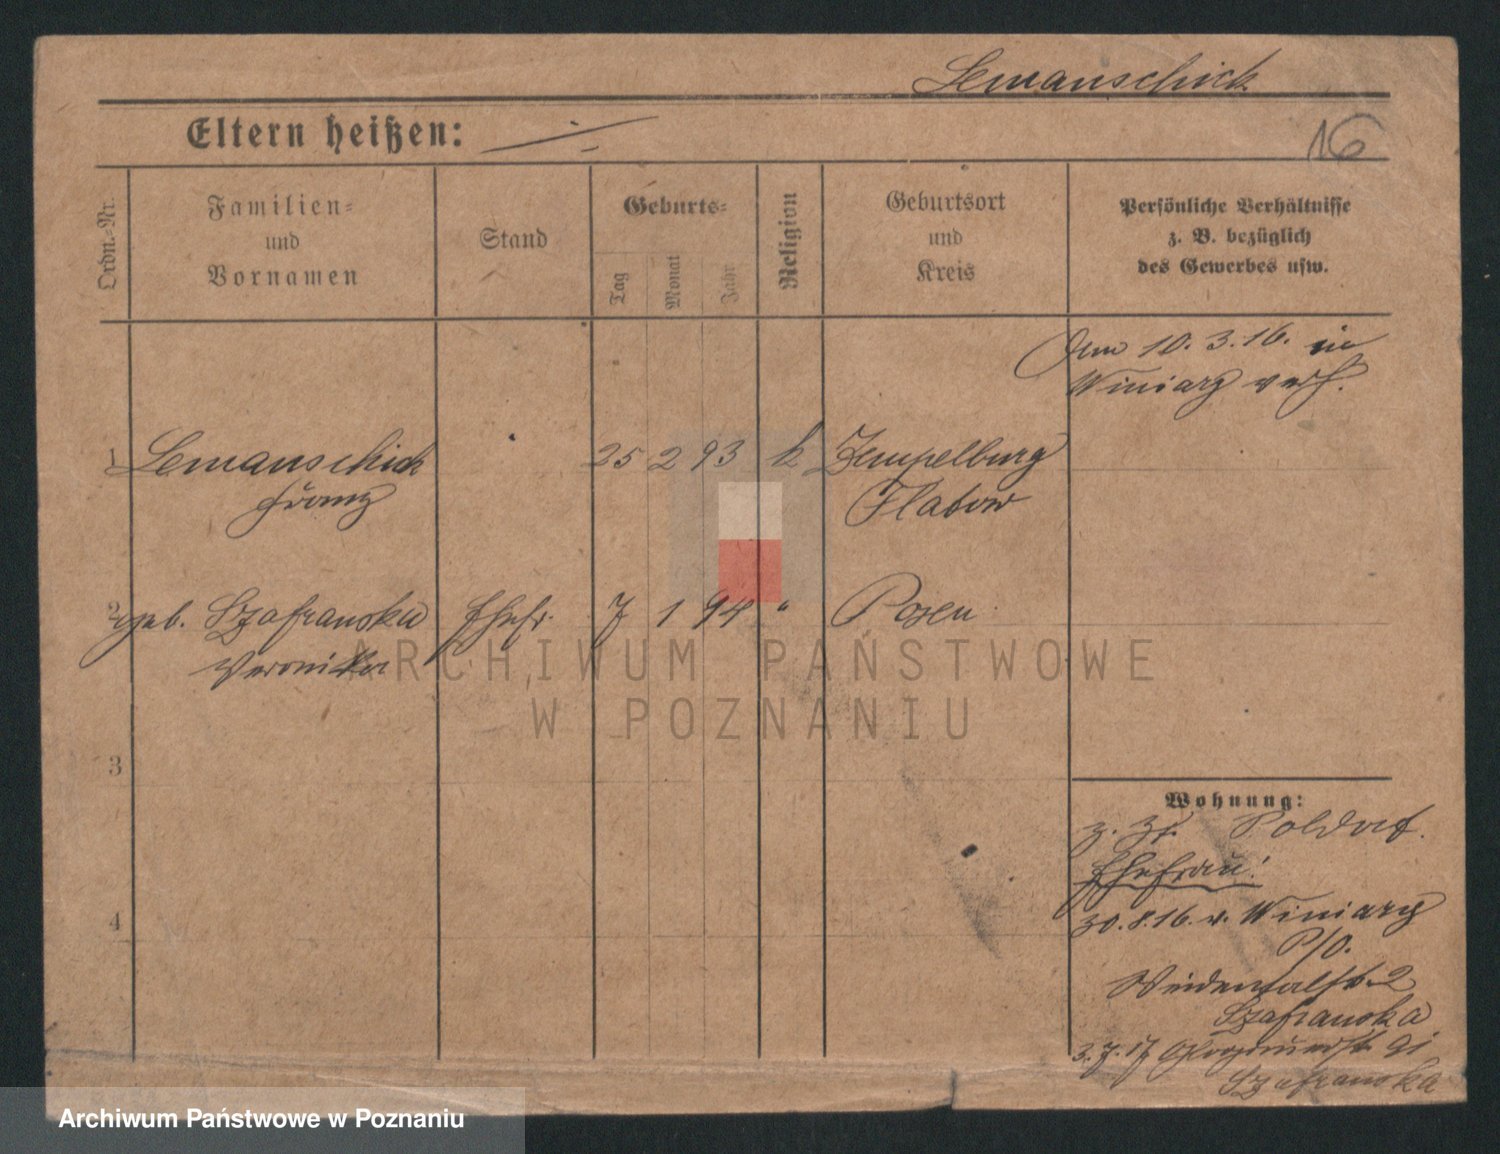 Lemanschick
Eltern heißen:
16
Ordn.=Nr.
Familien=
und
Vornamen
Stand
Geburts=
Tag
Monat
Jahr
Religion
Geburtsort
und
Kreis
Persönliche Verhältnisse
z. B. bezüglich
des Gewerbes usw.
Am 10. 3. 16. in
Winiary verh.
1 Lemanschick 25 2 93 k Zempelburg
Franz Flatow
2 geb. Szafranska Ehefr. 7 1 94 " Posen
Veronika
3
4
Wohnung:
z. Zt. Soldat.
Ehefrau!
30.8.16. v. Winiary
P/O.
2
Szafranska
3.7.17 91
Szafranska
ARCHIWUM PAŃSTWOWE
W POZNANIU
Archiwum Państwowe w Poznaniu